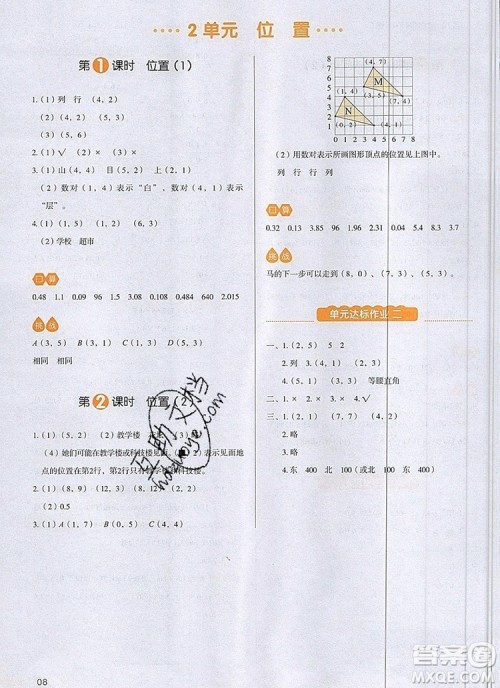 2 单元 位 置
第 1 课时 位置（1）
1.（1）列 行 （4，2）
（2）（4，2）（2，4）
（3）（5，6）
2.（1）√ （2）× （3）×
3.（1）山（4，4） 目（5，2） 上（2，1）
（2）数对（1，4）表示“白”，数对（4，1）表示
“层”。
4.（1）（1，5）（2，2）（5，5）
（2）学校 超市
口算
0.48 1.1 0.09 69 300 0.078 4.4 640 2.024 0.015
挑战
A（3，5） B（1，1） C（5，3）
相同 相同
第 2 课时 位置（2）
1.（1）（5，3）（2）教学楼
（4）她们可能在教学楼或科技楼见面。（2，2）表示见面地
点的位置在第2行，第2行只有教学楼和科技楼。
2.（1）（8，9）（12，3）（5，2）
（2）0.5
3.（1）A（1，7） B（0，5） C（4，4）
8
7
6
5
4
3
2
1
0 1 2 3 4 5 6 7 8
（4，7）
（1，4）
（3，5）
（7，4）
（0，2）
（4，2）
M
N
（2）用数对表示所画图形顶点的位置见上图中。
列 行 行 列
口算
0.32 0.13 3.85 96 1.96 2.31 0.04 5.4 8.3 3.7
挑战
马的下一步可以走到（8，0）、（7，1）、（5，3）。
单元达标作业 二
一、1.（2，5） 5 2
2. 列 （3，4）
3.（5，1）（5，3） 等腰直角
二、1. √ 2. × 3. × 4. ×
三、1.（1，2）（5，4）（4，7）
2. 略
3. 略
4. 东 400 北 100（或北 100 东 400）
互助文档
hazhuoye.com
08
答案圈
MXQE.COM